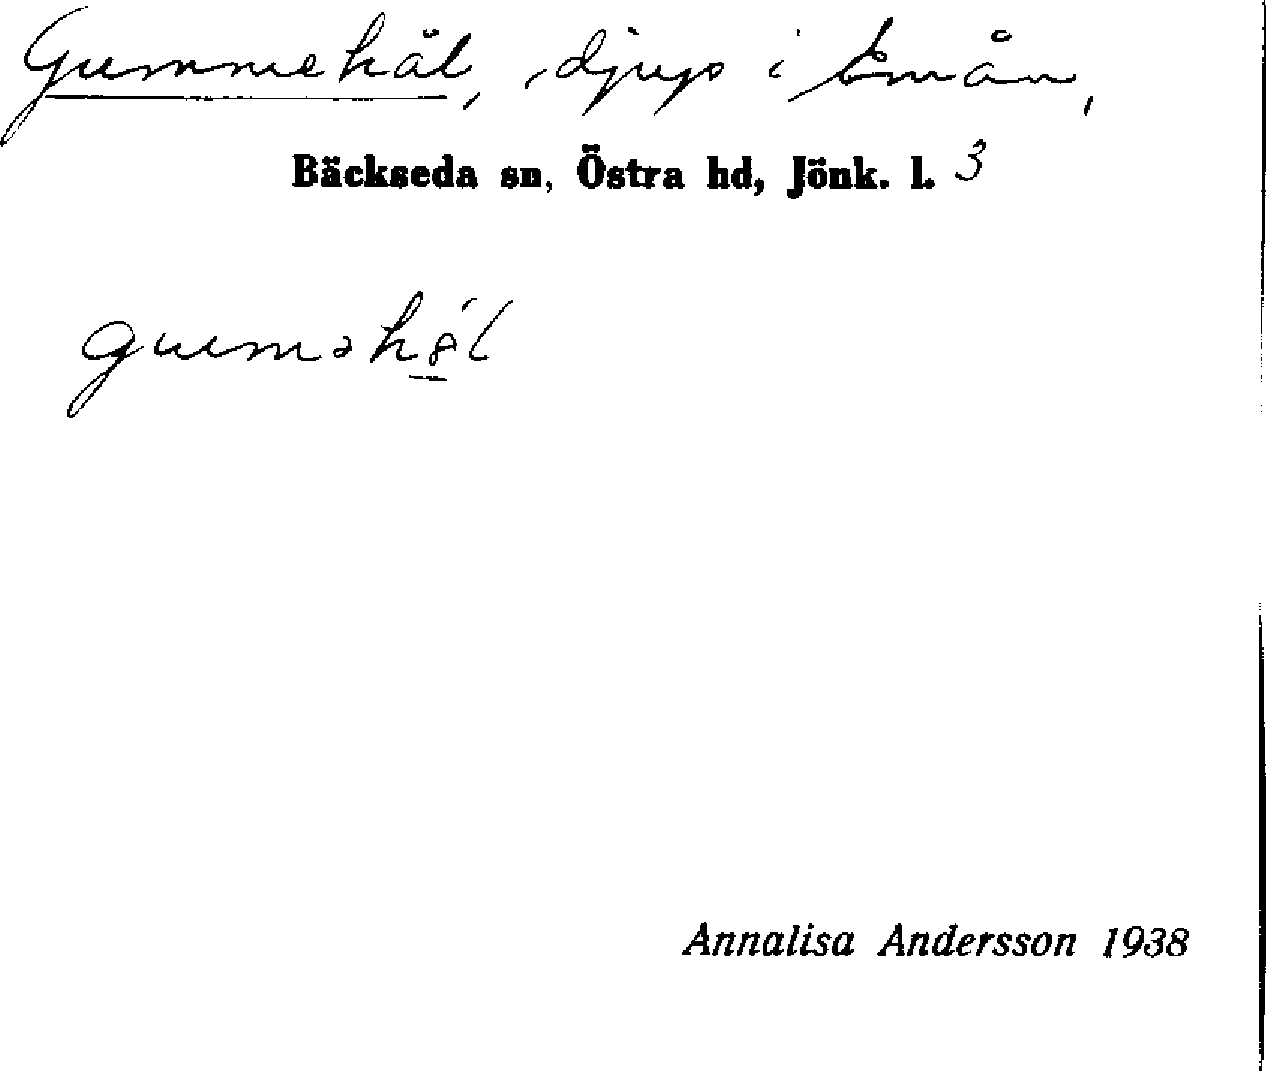 Gummehål, djup i Emån,
Bäckseda sn, Östra hd, Jönk. l. 3
Annalisa Andersson 1938